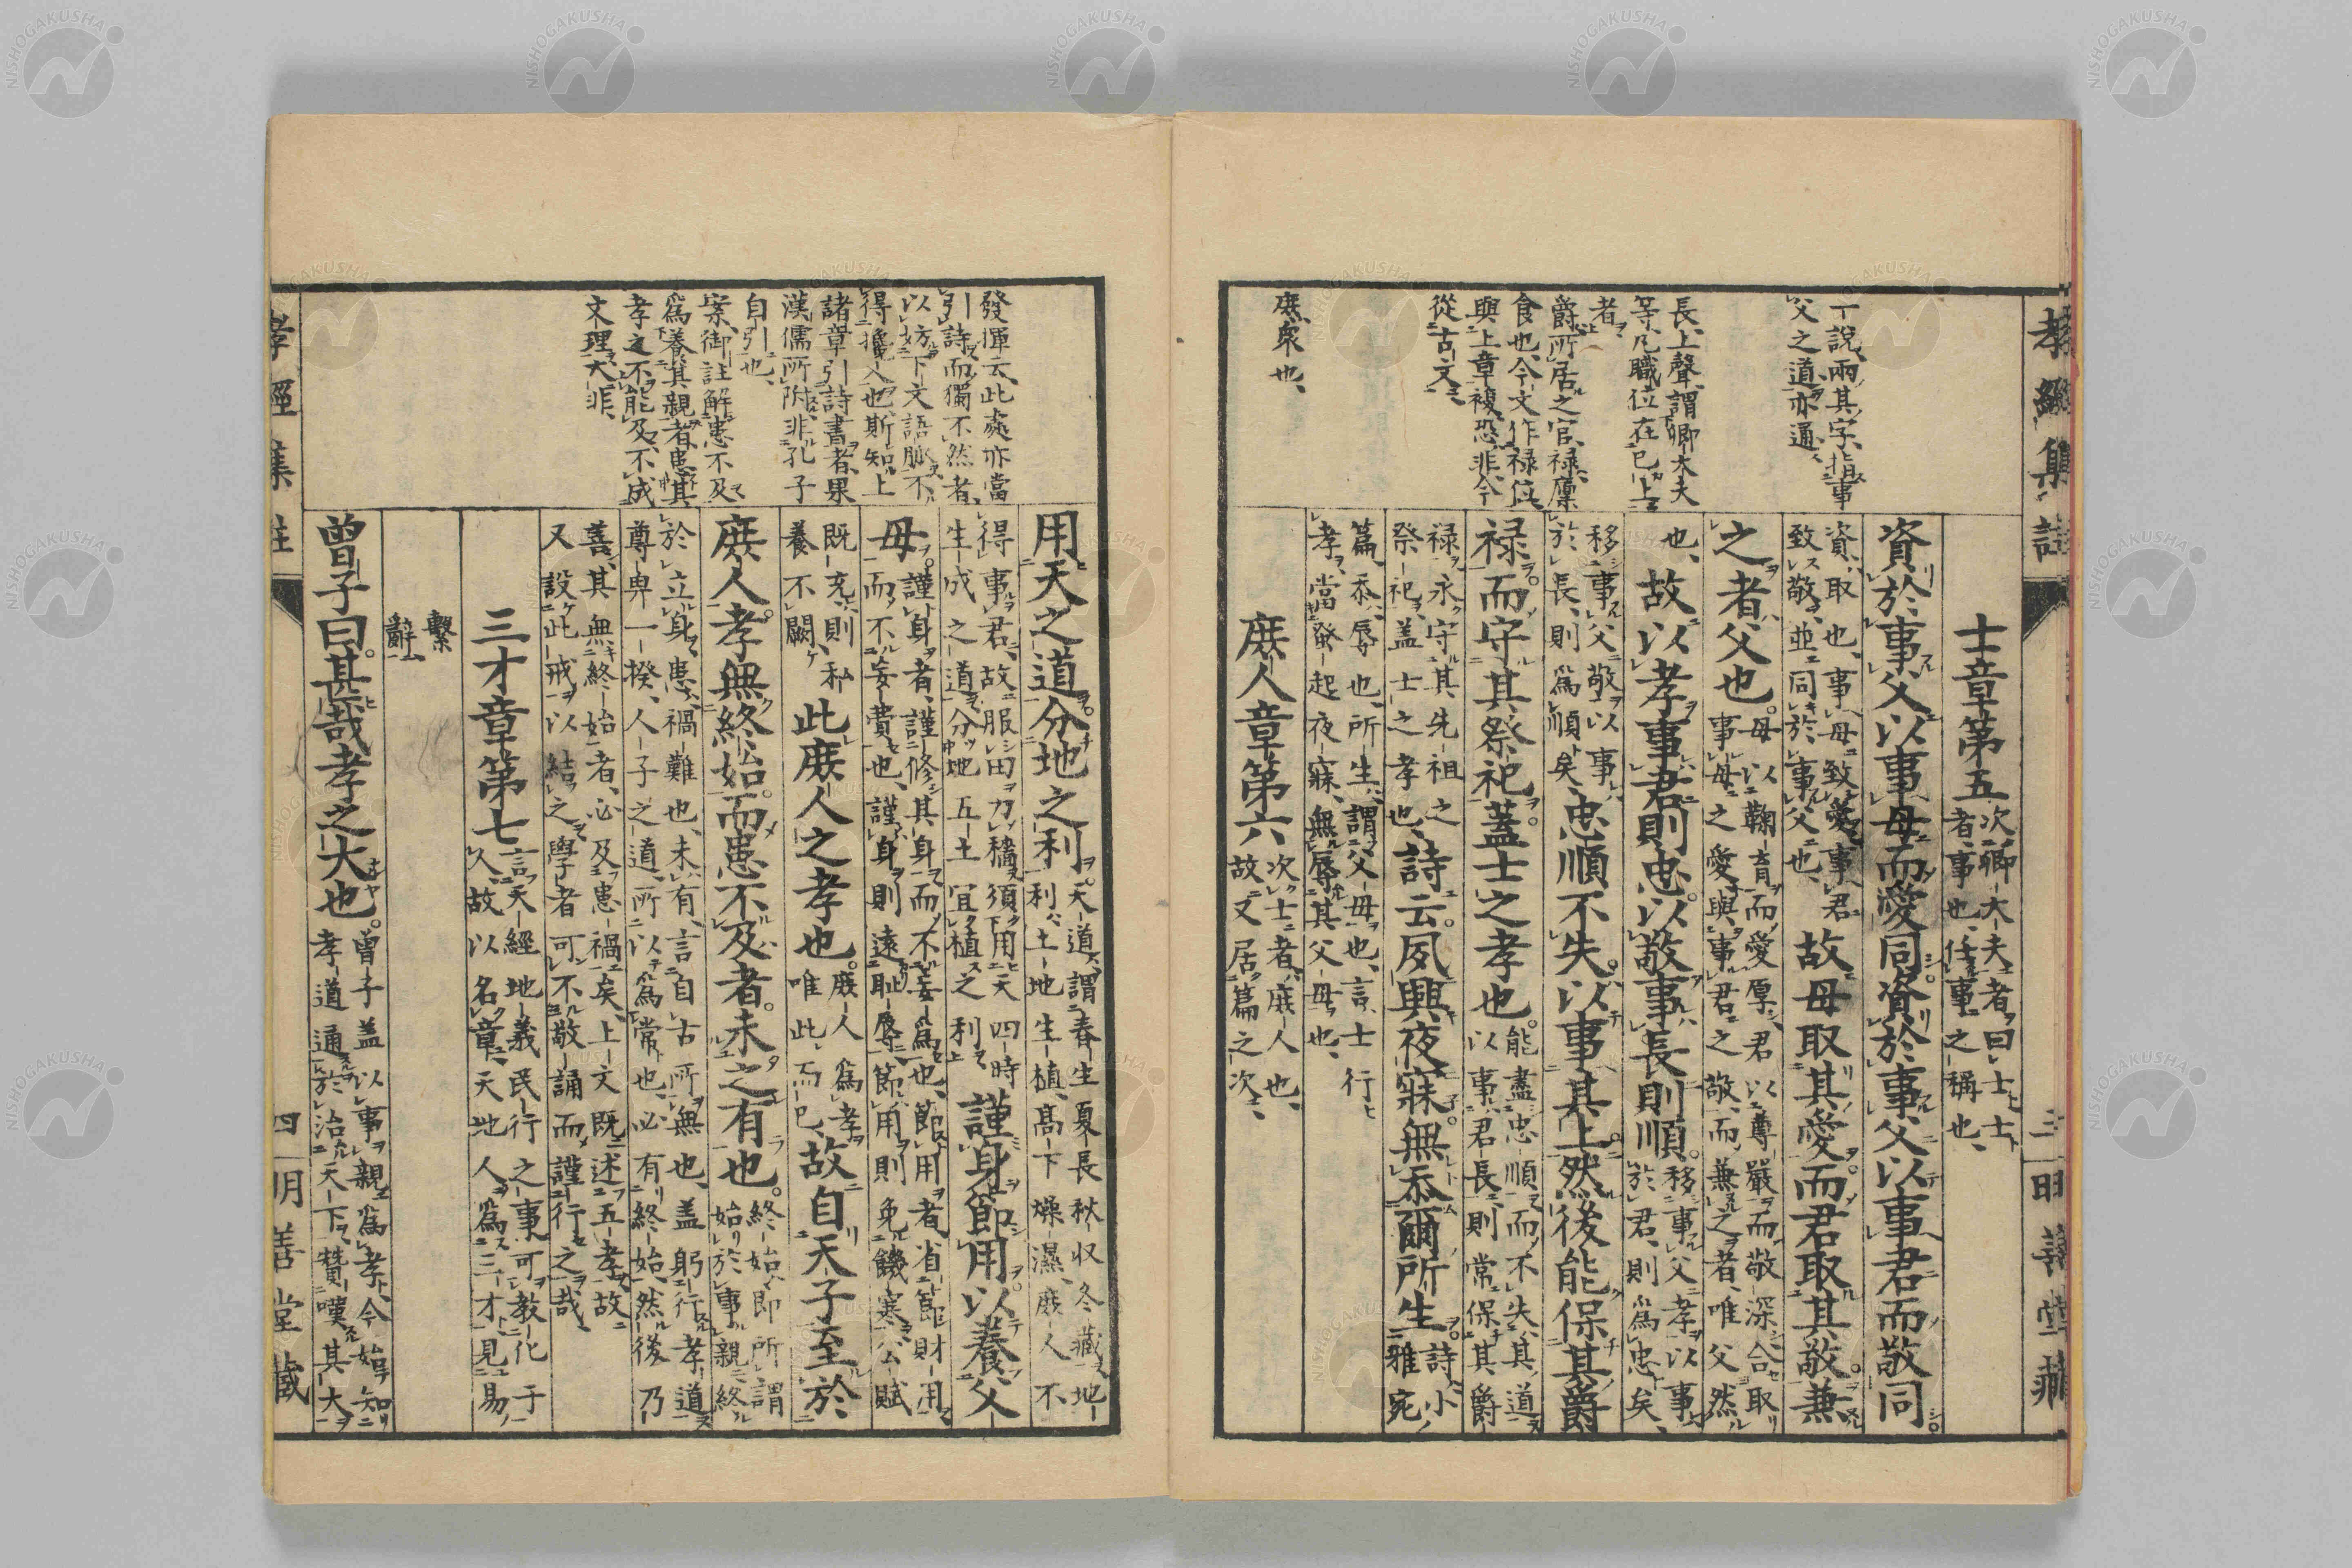 孝經集註
三
明善堂藏
一說兩其字指事
父之道亦通
長上聲謂卿大夫
等凡職位在己上
者
爵所居之官祿廩
食也今文作祿位
與上章複恐非今
從古文
庶衆也
士章第五
次卿大夫者曰士士
者事也任事之稱也
資於事父以事母而愛同資於事父以事君而敬同
資取也事母致愛事君
致敬並同於事父也
故母取其愛而君取其敬兼
之者父也
母以鞠育而愛厚君以尊嚴而敬深合取
事母之愛與事君之敬而兼之者唯父然
也
故以孝事君則忠以敬事長則順
移事父孝以事
於君則爲忠矣
移事父敬以事
於長則爲順矣
忠順不失以事其上然後能保其爵
祿而守其祭祀蓋士之孝也
能盡忠順而不失其道
以事君長則常保其爵
祿永守其先祖之
祭祀蓋士之孝也
詩云夙興夜寐無忝爾所生
詩小
雅宛
篇忝辱也所生謂父母也言士行
孝當發起夜寐無辱其父母也
庶人章第六
次士者庶人也
故又居篇之次
發揮云此處亦當
引詩而獨不然者
以妨下文語脈不
得攙入也斯知上
諸章引詩書者果
漢儒所附非孔子
自引也
案御註解患不及
爲養其親者患其
孝之不能及不成
文理大非
用天之道分地之利
天道謂春生夏長秋收冬藏地
利土地生植高下燥濕庶人不
得事君故服田力穡須用天四時
生成之道分地五土宜植之利
謹身節用以養父
母
謹身者謹修其身而不妄爲也節用者省節財用
而不妄費也謹身則遠恥辱節用則免饑寒公賦
既充則私
養不闕
此庶人之孝也
庶人爲孝
唯此而已
故自天子至於
庶人孝無終始而患不及者未之有也
終始即所謂
始於事親終
於立身患禍難也未有言自古所無也蓋躬行孝道
尊卑一揆人子之道所以爲常也必有終始然後乃
善其無終始者必及患禍矣上文既述五孝故
又設此戒以結之學者可不敬誦而謹行之哉
三才章第七
言天經地義民行之事可教化于
人故以名章天地人爲三才見易
繫
辭
曾子曰甚哉孝之大也
曾子蓋以事親爲孝今始知
孝道通於治天下贊嘆其大
孝經集註
四
明善堂藏